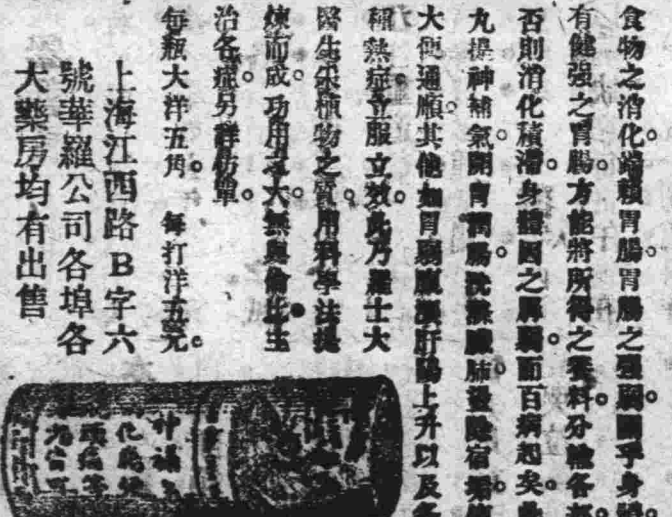 食物之消化端賴胃腸。胃腸之強弱關乎身
有健強之胃腸。方能將所得之養料。分輸各
否則消化積滯。身體因之孱弱。而百病起矣。
丸提神補氣。開胃潤腸。洗滌臟肺。
大便通順。其他如胃弱腹瀉肝陽上升以及各
種熱症立服立效。此乃瑞士大
醫生采植物之質。用科學法提
煉而成。功用之大。無與倫比。主
治各症。另詳仿單。
每瓶大洋五角。每打洋五元。
上海江西路B字六
號華羅公司各埠各
大藥房均有出售